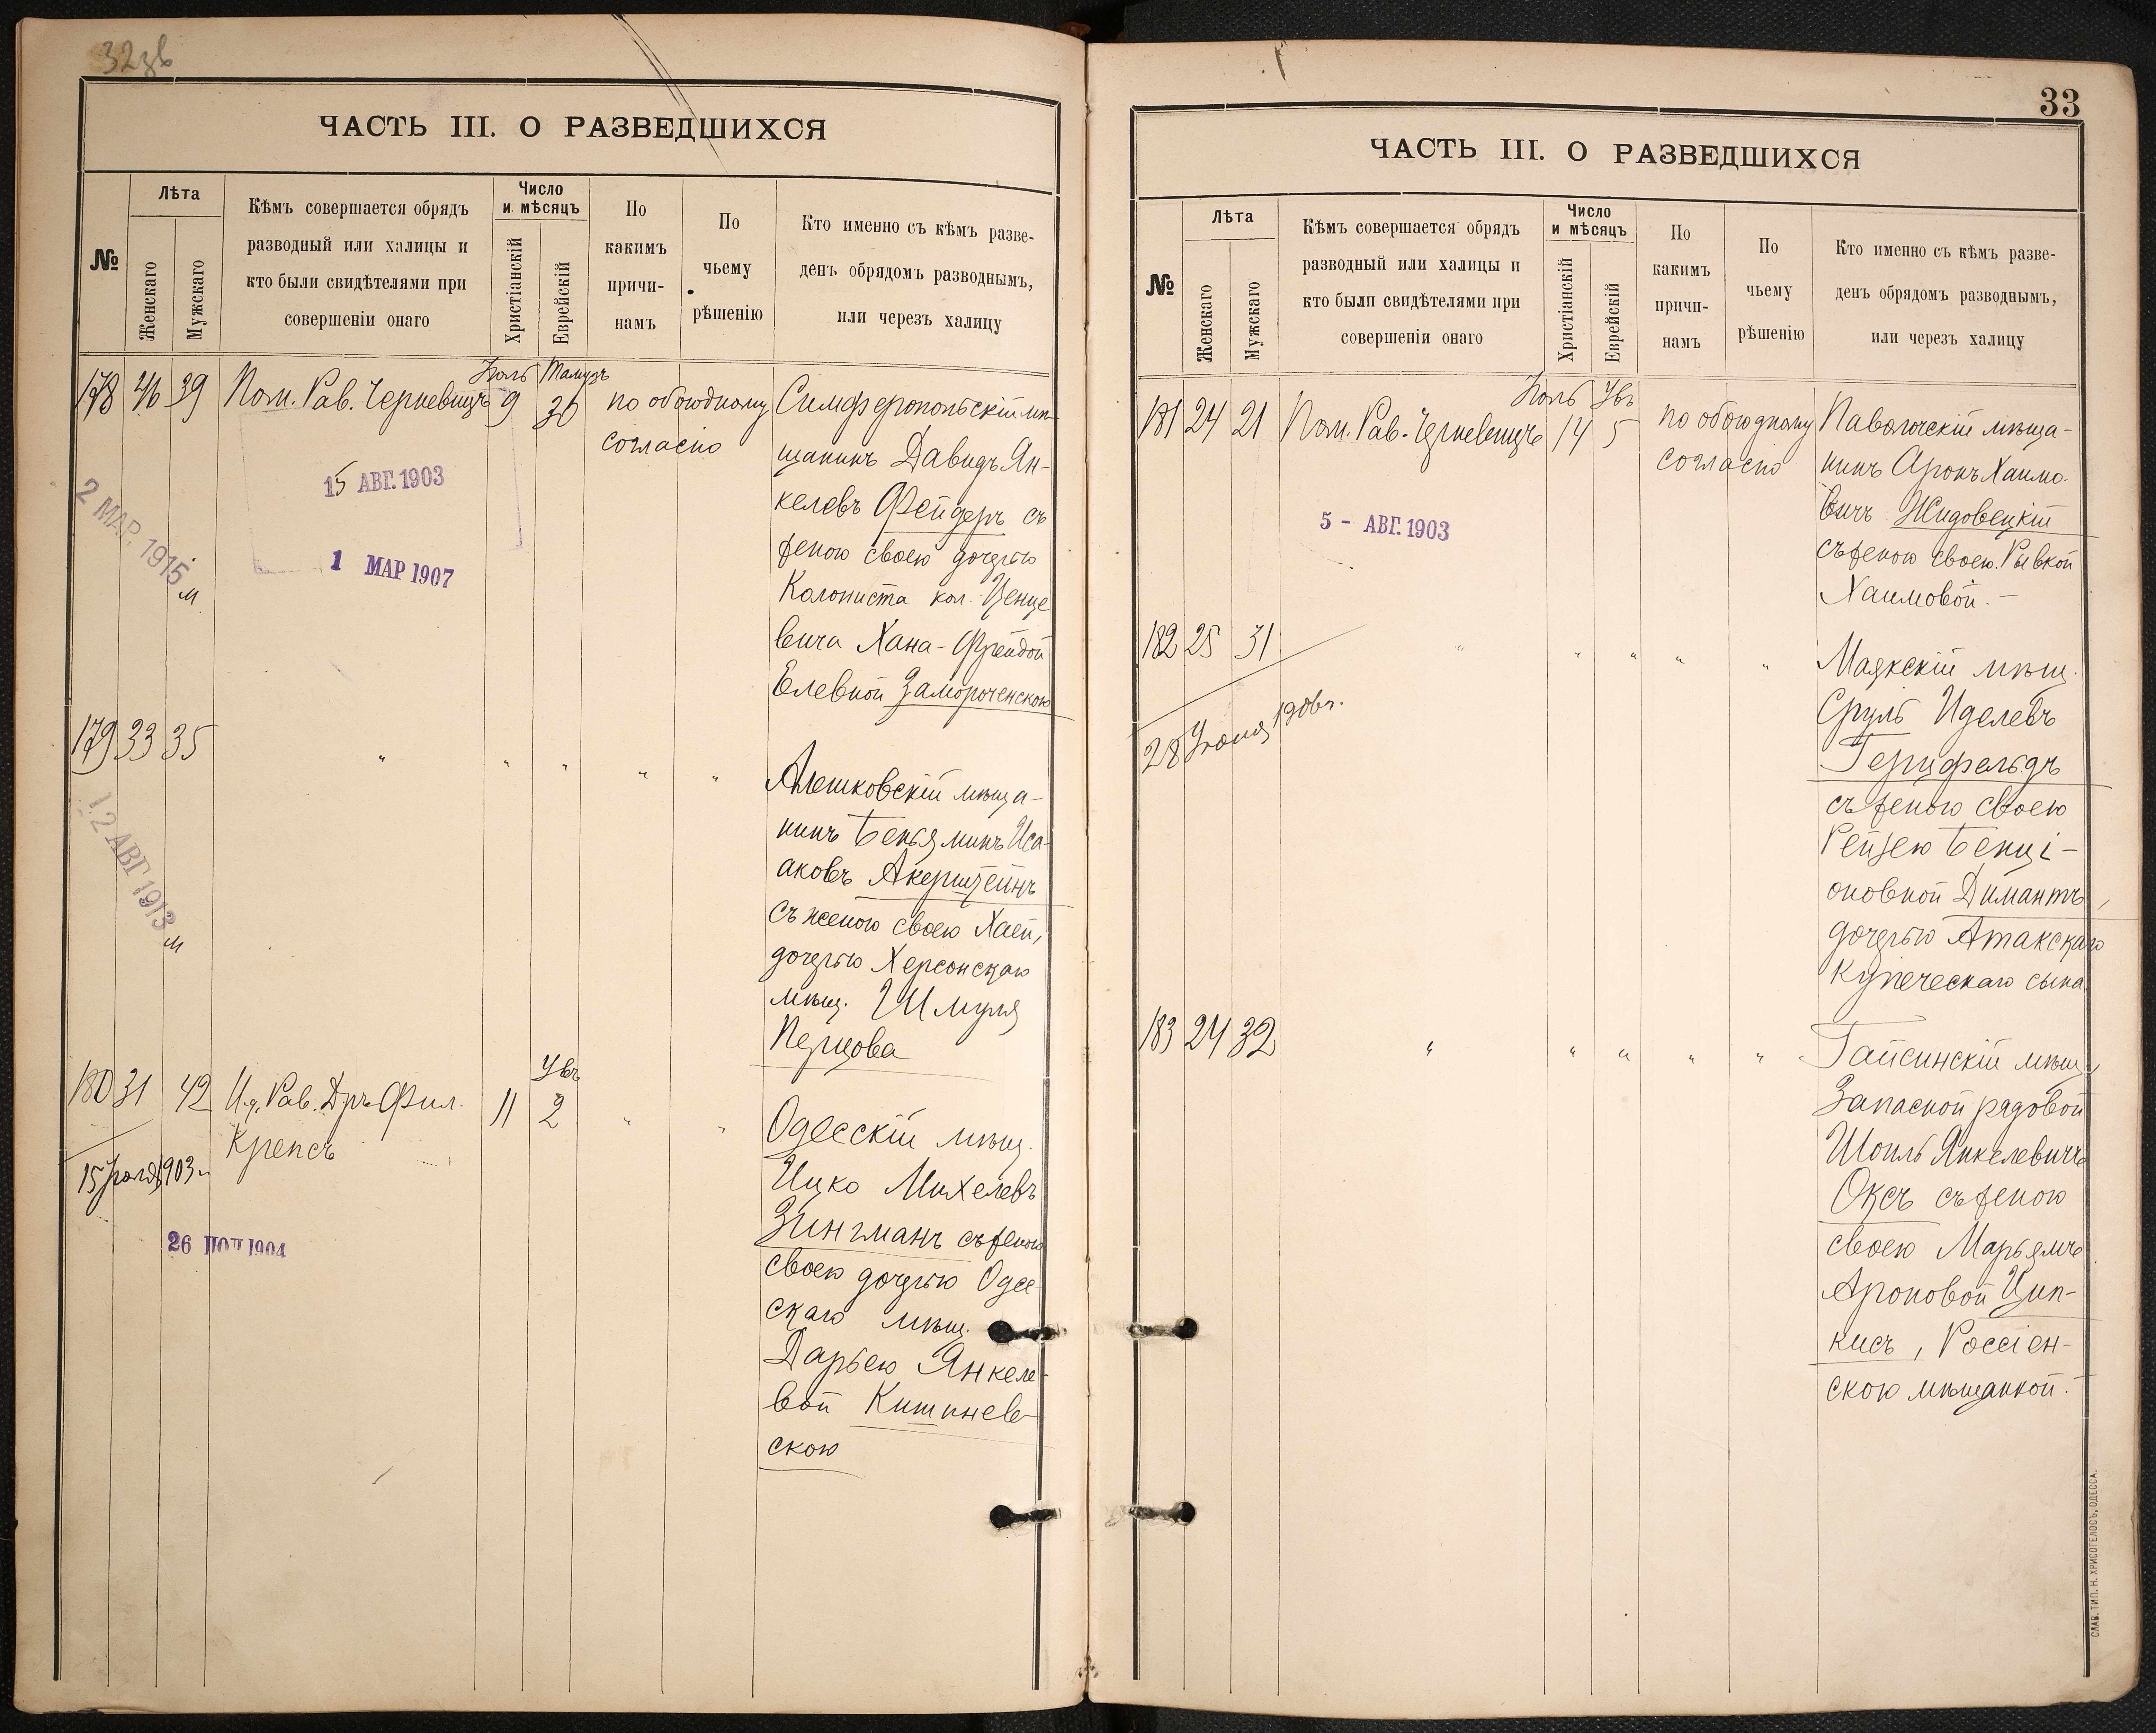 32зв
ЧАСТЬ III. О РАЗВЕДШИХСЯ
№
Лѣта
Женскаго
Мужскаго
Кѣмъ совершается обрядъ
разводный или халицы и
кто были свидѣтелями при
совершеніи онаго
Число
и мѣсяцъ
Христіанскій
Еврейскій
По
какимъ
причи-
намъ
По
чьему
рѣшенію
Кто именно съ кѣмъ разве-
денъ обрядомъ разводнымъ,
или черезъ халицу
Іюль Тамузъ
178 46 39 Пом. Рав. Черневицъ 9 30 по обоюдному
согласію
Симферопольскій мѣ-
щанинъ Давидъ Ян-
келевъ Фейдеръ съ
женою своею дочерью
Колониста кол.
вича Хана-Фрейдой
Елевной Замороченскою
15 АВГ. 1903
2 МАР. 1915
м
1 МАР 1907
179 33 35 " " " " "
Алешковскій мѣща-
нинъ Беньяминъ Иса-
аковъ Акерштейнъ
съ женою своею Хаей,
дочерью Херсонскаго
мѣщ. Шмуля
Перцова
12 АВГ 1913
м
Увъ
180 31 42 И.д. Рав. Д-ръ Фил. 11 2 " "
Крепсъ
15 Іюля 1903 г.
26 1904
Одесскій мѣщ.
Ицко Михелевъ
Зингманъ съ женою
своею дочерью Одес-
скаго мѣщ.
Дарьею Янкеле-
вой Кишинев-
скою
33
ЧАСТЬ III. О РАЗВЕДШИХСЯ
№
Лѣта
Женскаго
Мужскаго
Кѣмъ совершается обрядъ
разводный или халицы и
кто были свидѣтелями при
совершеніи онаго
Число
и мѣсяцъ
Христіанскій
Еврейскій
По
какимъ
причи-
намъ
По
чьему
рѣшенію
Кто именно съ кѣмъ разве-
денъ обрядомъ разводнымъ,
или черезъ халицу
Іюль Увъ
181 24 21 Пом. Рав. Черневицъ 14 5 по обоюдному
согласію
Паволочскій мѣща-
нинъ Аронъ Хаимо-
вичъ Жидовецкій
съ женою своею Рывкой
Хаимовой.-
5 - АВГ. 1903
182 25 31 " " " " "
28 Іюня 1906 г.
Маякскій мѣщ.
Сруль Иделевъ
Герцфельдъ
съ женою своею
Рейзею Бенці-
оновной Димантъ,
дочерью Атакскаго
купеческаго сына
183 24 32 " " " " "
Гайсинскій мѣщ.
Запасной рядовой
Шоиль Янкелевичъ
Оксъ съ женою
своею Марьямъ
Ароновой Цип-
кисъ, Россіен-
скою мѣщанкой.-
СЛАВ. ТИП. Н. ХРИСОГЕЛОСЪ, ОДЕССА.